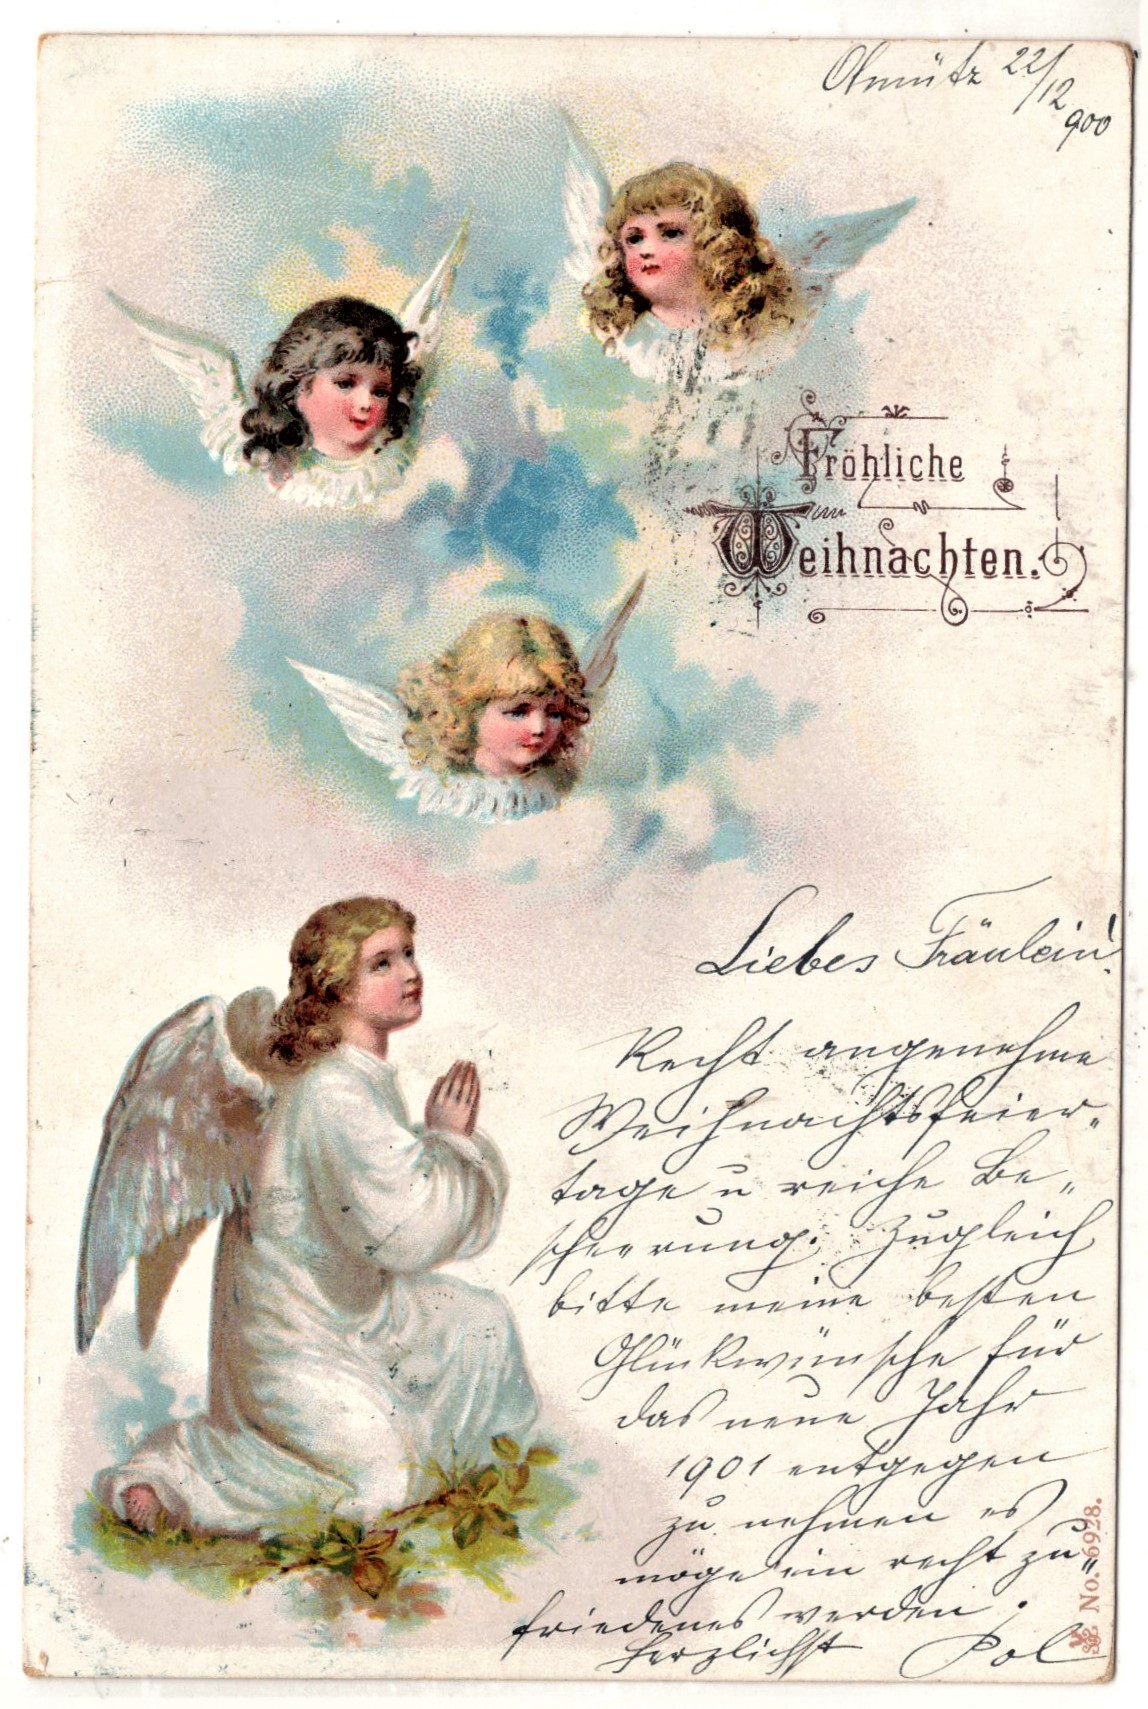 Olmütz 22/12 900
Fröhliche
Weihnachten.
Liebes Fräulein!
Recht angenehme
Weihnachtsfeier„
tage u reiche Be„
scheerung. Zugleich
bitte meine besten
Glückwünsche für
das neue Jahr
1901 entgegen
zu nehmen es
möge ein recht zu„
friedenes werden.
Herzlichst Pol
No. 6928.